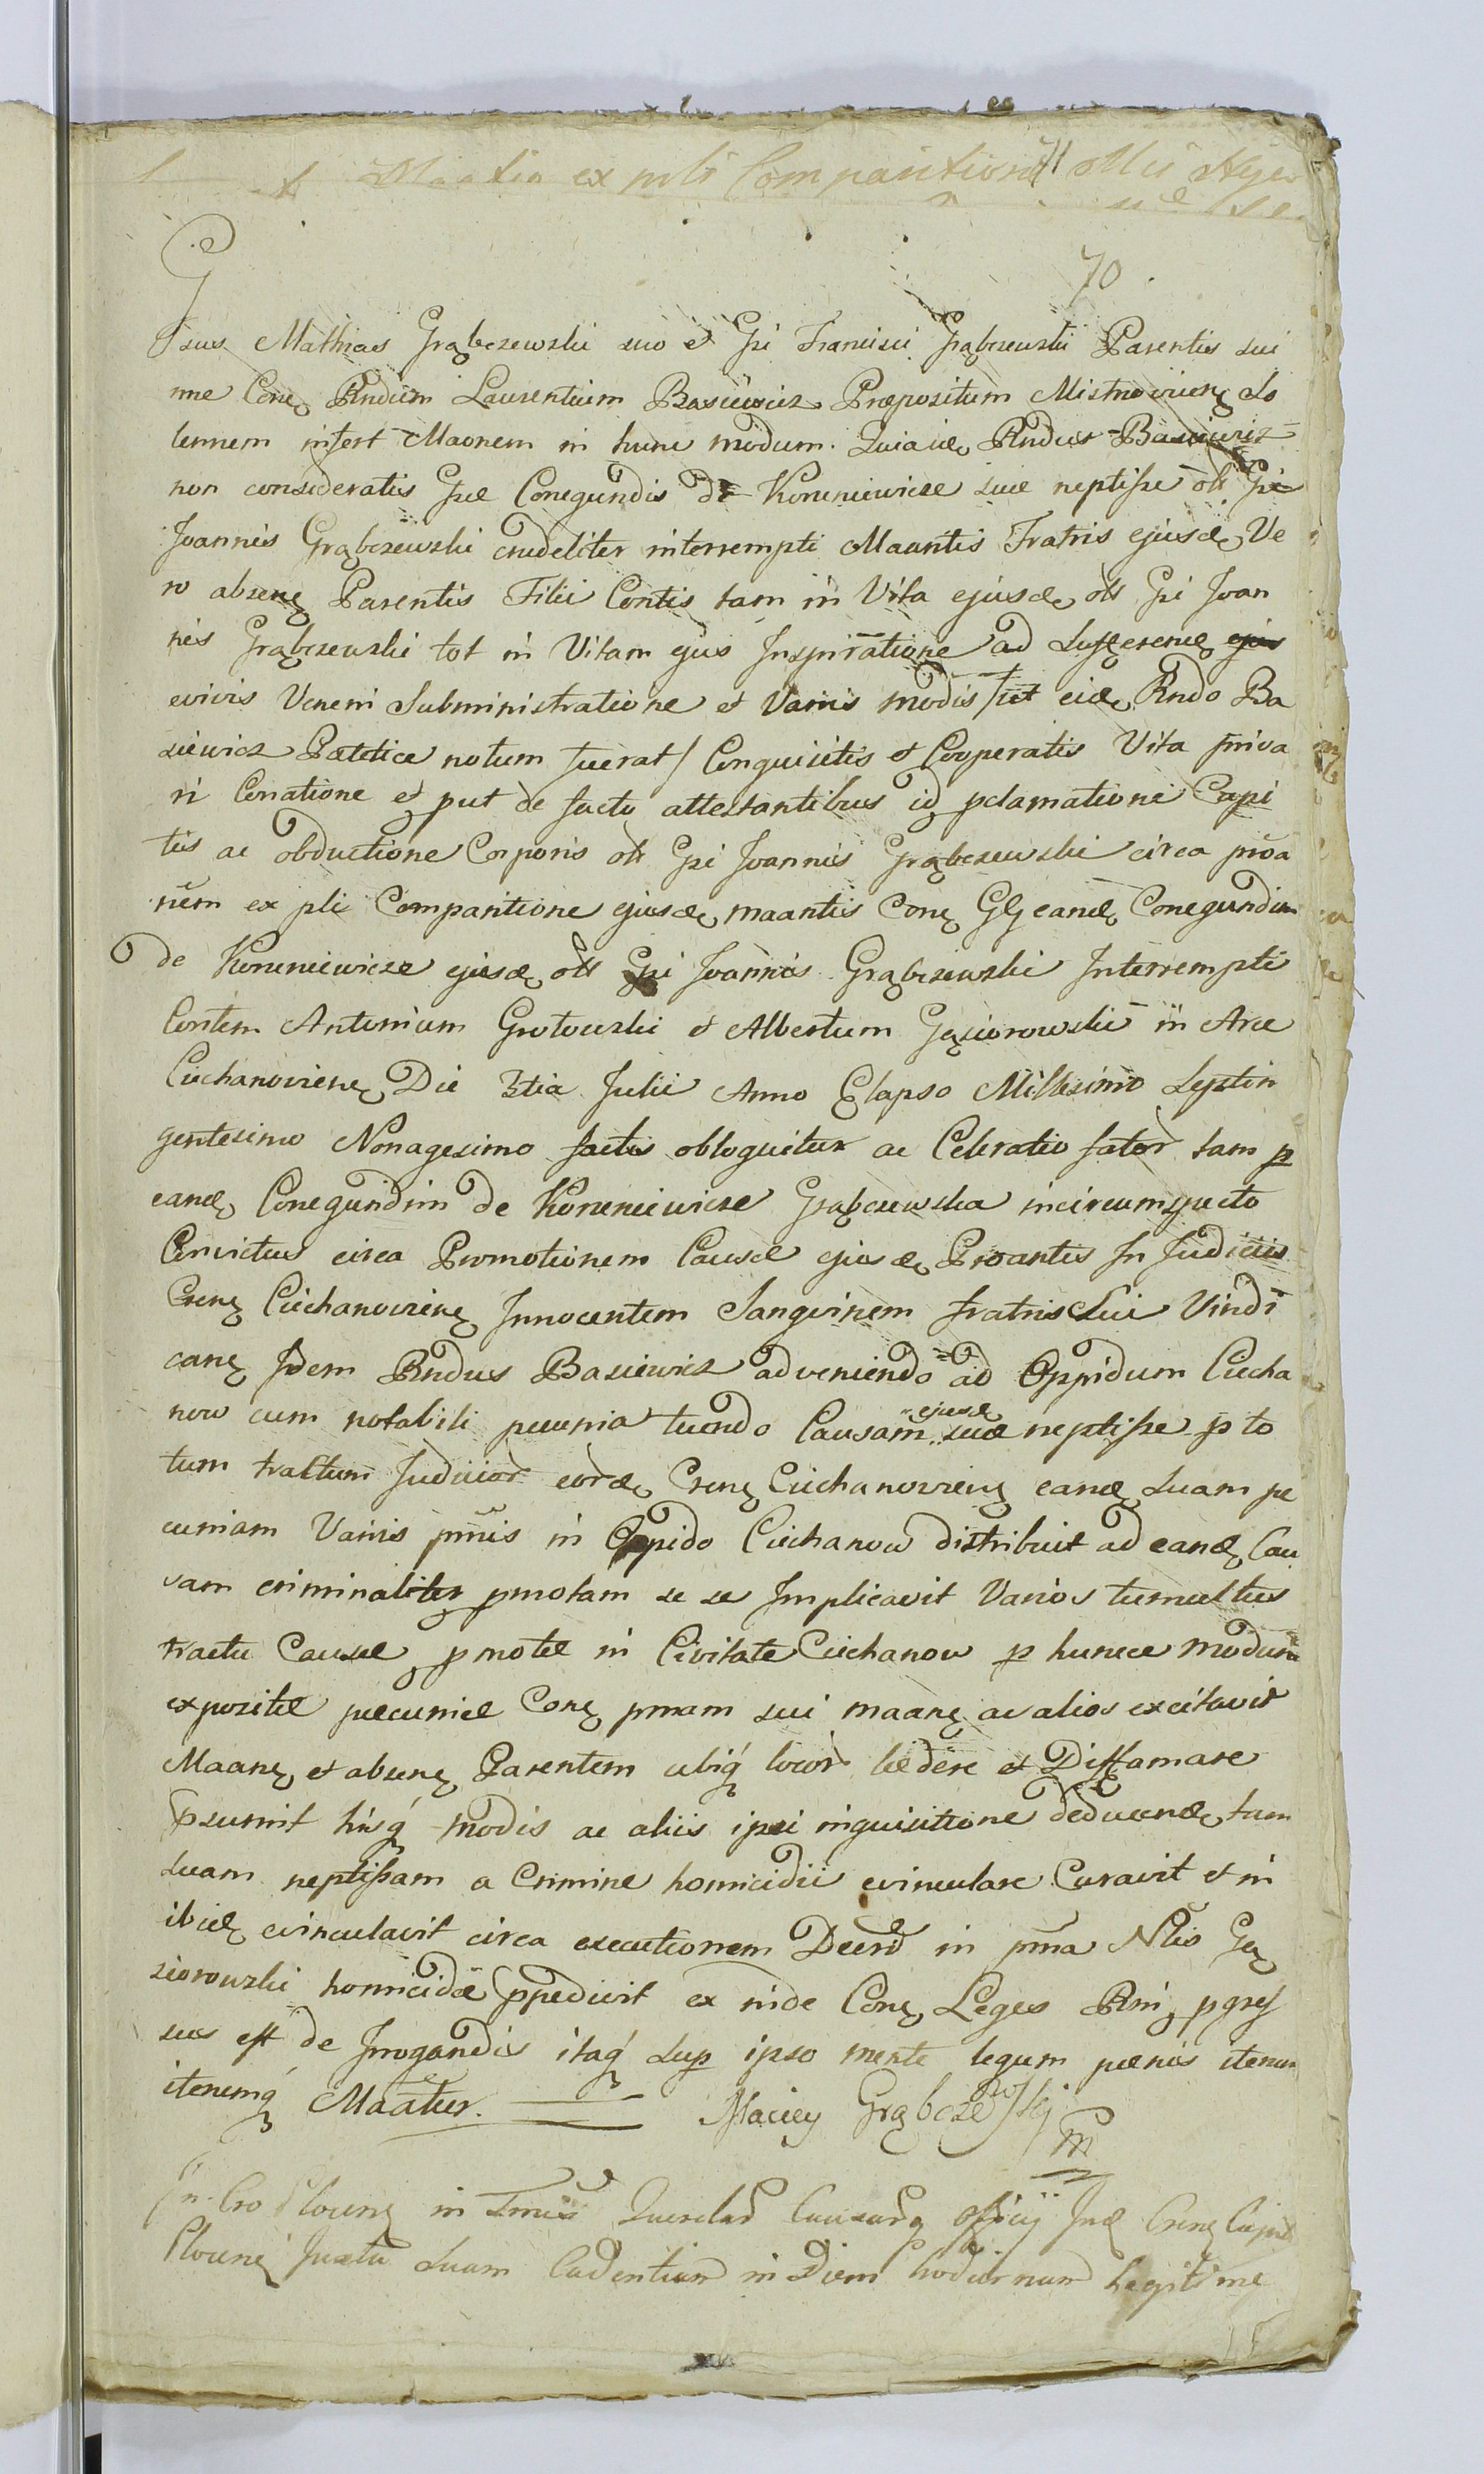 Maatio ex pnbi Comparitione
70
Gsus Mathias Grąbczewski suo et Gsi Francisci Grąbczewski Parentis sui
nne Cone Rndum Laurentium Basiewicz Præpositum Mistnoviene So
lennem infert Maonem in hunc modum. Quia idē Rndus Basiewicz
non consideratis Gsæ Conegundis de Koreniewicze suæ neptissæ olt Gsi
Joannis Grąbczewski crudeliter interrempti Maantis Fratris ejusdē Ve
ro absene Parentis Filii Contis tam in Vita ejusdē olt Gsi Joan
nis Grąbczewski tot in Vitam ejus Inspiratione ad
evivis Veneni Subministratione et Variis modis /ut eidē Rndo Ba
siewicz Patetice notum fuerat/ Conquisitis et Cooperatis Vita priva
ri Conatione et put de facto attestantibus id pclamatione Capi
tis ac obductione Corporis olt Gsi Joannis Grąbczewski circa proa
nem ex pli Comparitione ejusdē maantis Cone Gsj eandē Conegundim
de Koreniewicze ejusdē olt Gsi Joannis Grąbczewski Interrempti
Contem Antonium Grotowski et Albertum Gąsiorowski in Arce
Ciechanoviene Die 3tia Julii Anno Elapso Millesimo Septin
gentesimo Nonagesimo factis obloquitur ac Celeratio tam p
eandē Conegundim de Koreniewicze Grąbczewska incircumspecto
Convictus circa Promotionem Causæ ejusdē Proantis In Judiciis
Crene Ciechanoviene Innocentem Sangvinem fratris Sui Vindi
cane Idem Rndus Basiewicz adveniendo ad Oppidum Ciecha
now cum notabili pecunia tuendo Causam ejusdē suæ neptissæ p to
tum tractum Judicior eordē Crene Ciechanoviene eandē Suam pe
cuniam Variis pnnis in Oppido Ciechanow distribuit ad eandē Cau
sam criminaliter pmotam se se Implicavit Varios tumultus
tractu Causæ pmotæ in Civitate Ciechanow p huncce modum
expositæ pæcuniæ Cone pnnam sui maane ac alios excitavit
Maane et absene Parentem ubiq locor lædere et Diffamare
psumit hisq modis ac aliis ipsi inquisitione deducendē tam
Suam neptissam a Crimine homicidii evinculare Curavit et in
ibidē evinculavit circa executionem Decrti in pnna Nlis Gą
siorowski homicidæ ppedivit ex inde Cone Leges Rni pgres
sus est de Irrogandis itaq sup ipso mente legum pænis iterum
iterumq Maatur.
Maciey Grąbczewskj
mp
In Cro Plocene in Tmis Querelar Causarq officij Juē Crene Capit
Plocene Juxta Suam Cadentiam in Diem hodiernum Legitime